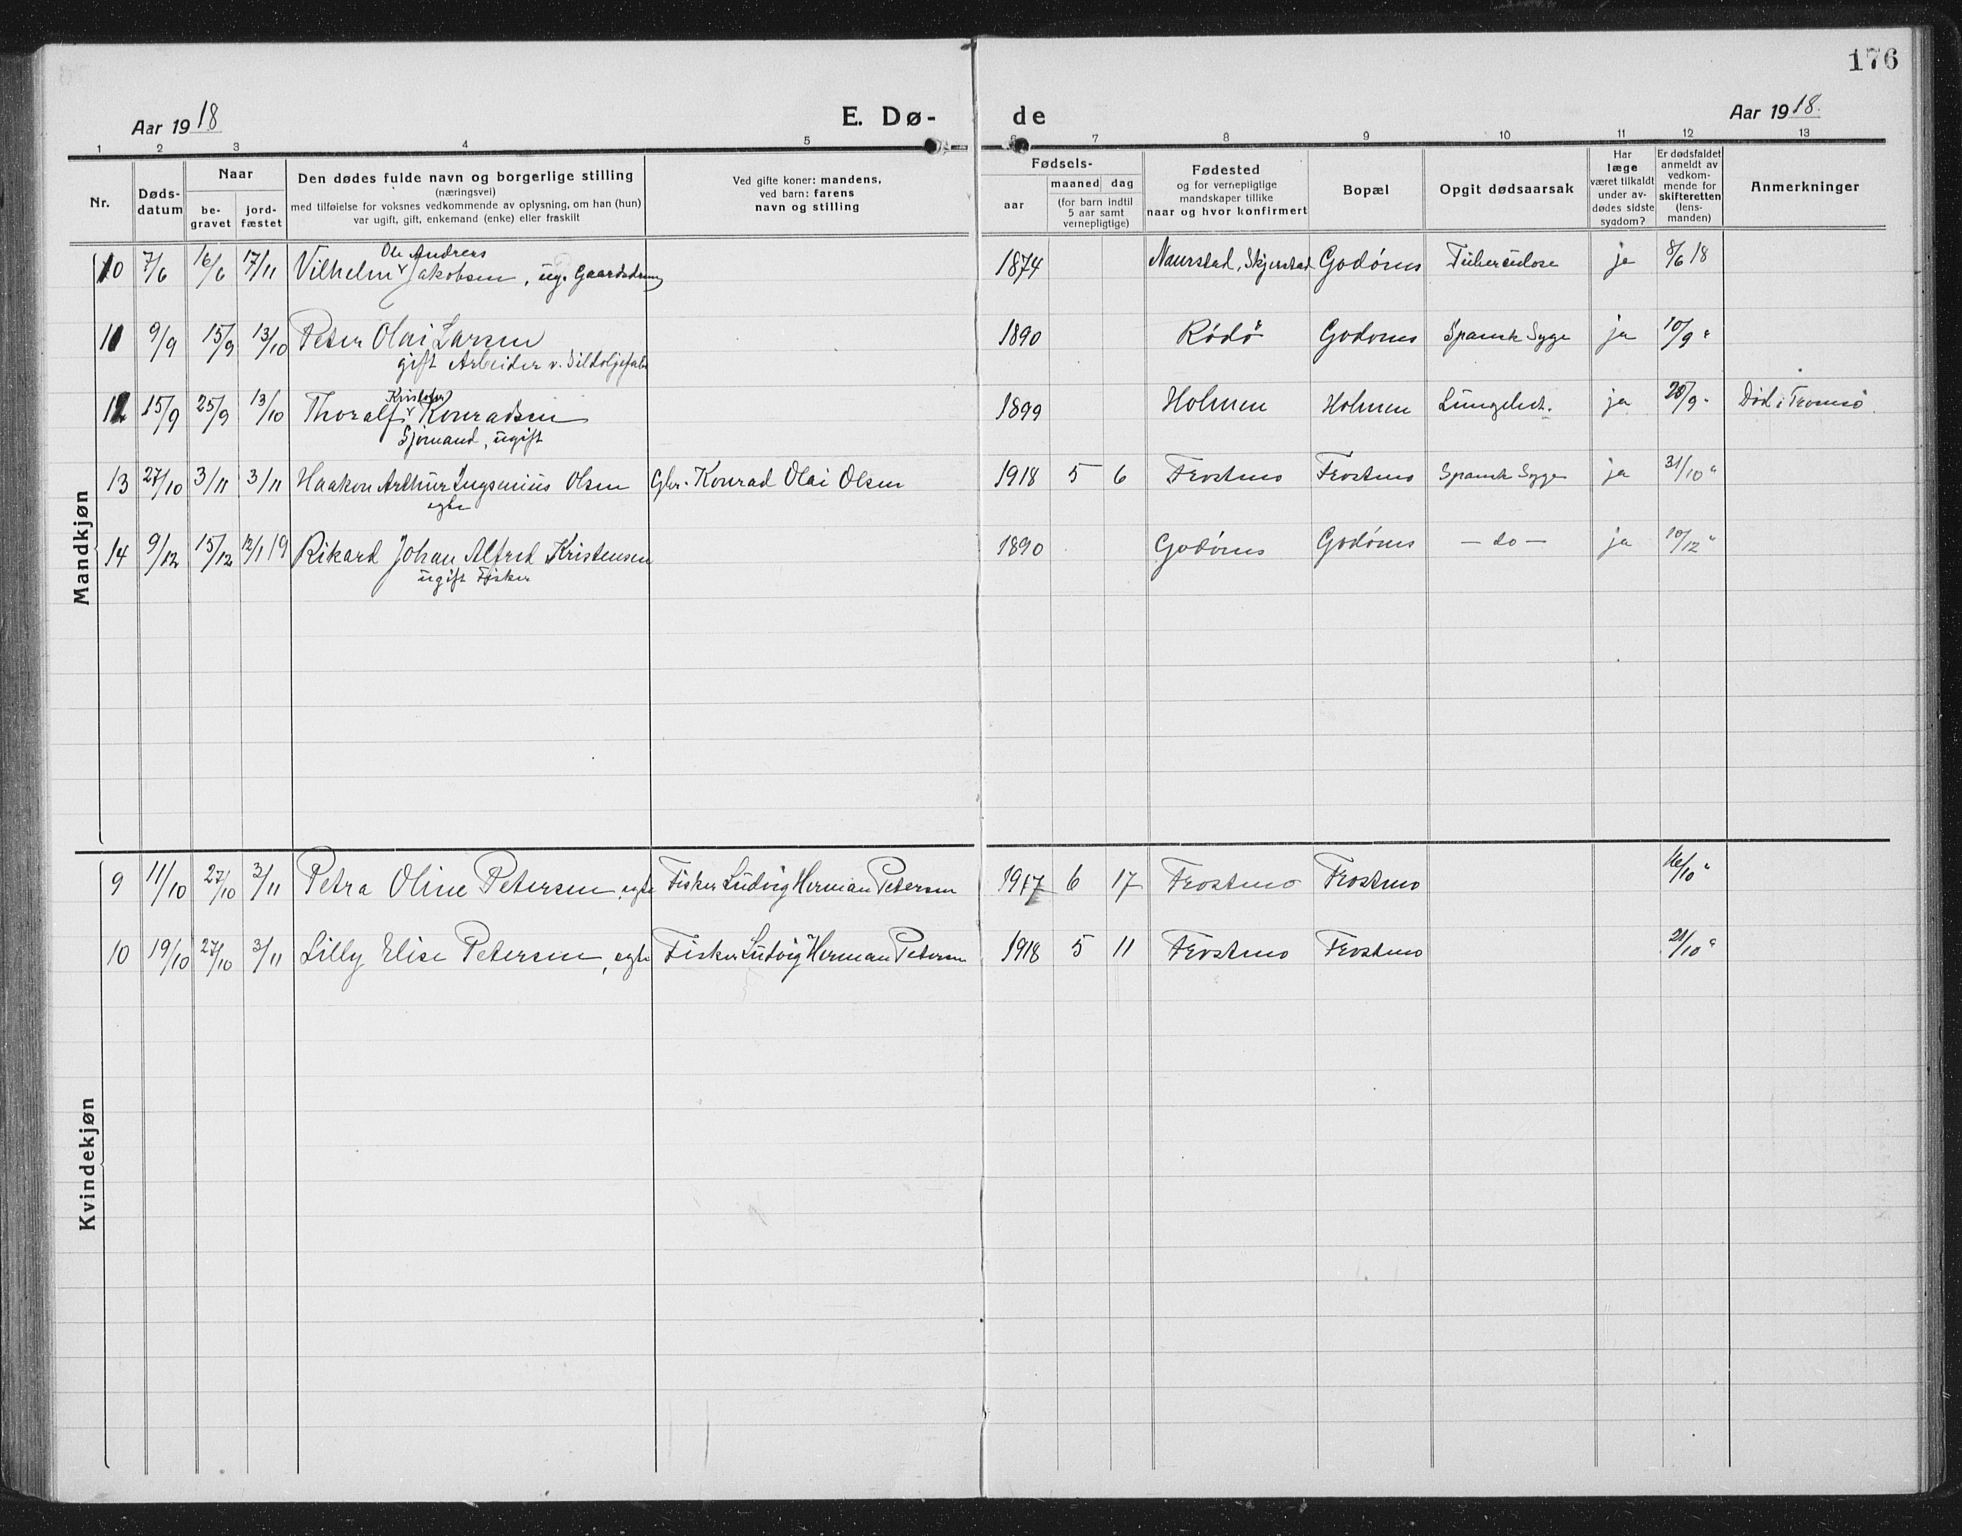 176
Aar 1918
E. Dø-
de
Aar 1918.
1 2 3 4 5 6 7 8 9 10 11 12 13
Nr.
Døds-
datum
Naar
be-
gravet
jord-
fæstet
Den dødes fulde navn og borgerlige stilling
(næringsvei)
med tilføielse for voksnes vedkommende av oplysning, om han (hun)
var ugift, gift, enkemand (enke) eller fraskilt
Ved gifte koner: mandens,
ved barn: farens
navn og stilling
Fødsels-
aar
maaned dag
(for barn indtil
5 aar samt
vernepligtige)
Fødested
og for vernepligtige
mandskaper tillike
naar og hvor konfirmert
Bopæl
Opgit dødsaarsak
Har
læge
været tilkaldt
under av-
dødes sidste
sygdom?
Er dødsfaldet
anmeldt av
vedkom-
mende for
skifteretten
(lens-
manden)
Anmerkninger
Mandkjøn
Ole Andreas
10 7/6 16/6 17/11 Vilhelm Jakobsen, ug. Gaardsdreng 1874 Naurstad, Skjerstad Godønes Tuberculose ja 8/6 18
11 9/9 15/9 13/10 Peter Olai Larsen 1890 Rødø Godønes Spansk Syge ja 10/9 "
gift Arbeider v. Sildoljefabr
Kristofer
12 15/9 25/9 13/10 Thoralf Konradsen 1899 Holmen Holmen Lungebet. ja 20/9 " Død i Tromsø.
Sjømand, ugift
13 27/10 3/11 3/11 Haakon Arthur Ingenius Olsen Gbr. Konrad Olai Olsen 1918 5 6 Frostmo Frostmo Spansk Syge ja 31/10 "
egte
14 9/12 15/12 12/1 19 Rikard Johan Alfred Kristensen 1890 Godønes Godønes — do — ja 10/12 "
ugift Fisker
Kvindekjøn
9 11/10 27/10 3/11 Petra Oline Petersen, egte Fisker Ludvig Herman Petersen 1917 6 17 Frostmo Frostmo 16/10 "
10 19/10 27/10 3/11 Lilly Elise Petersen, egte Fisker Ludvig Herman Petersen 1918 5 11 Frostmo Frostmo 21/10 "